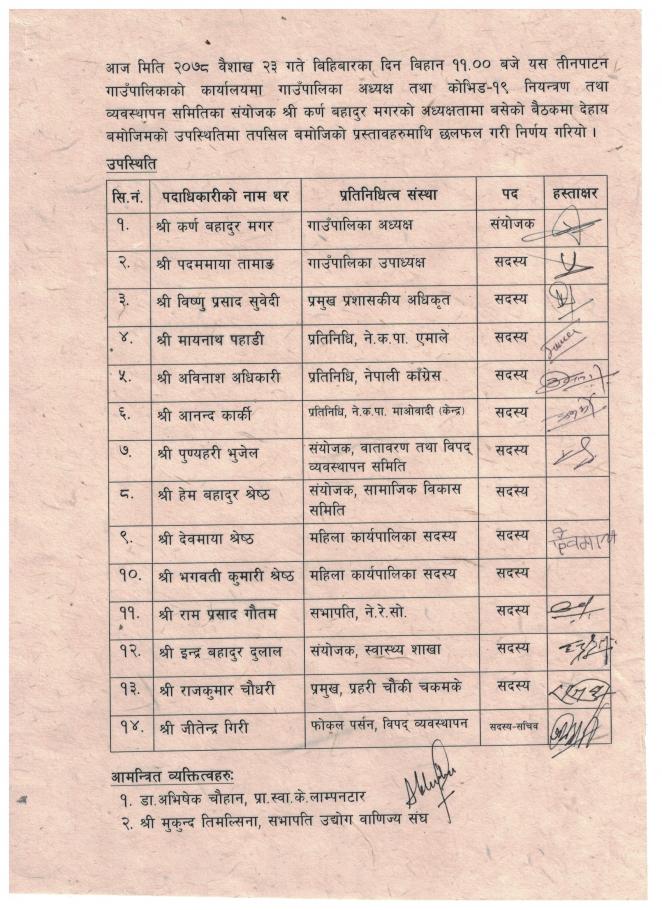 आज मिति २०७८ वैशाख २३ गते बिहिबारका दिन बिहान ११.०० बजे यस तीनपाटन
गाउँपालिकाको कार्यालयमा गाउँपालिका अध्यक्ष तथा कोभिड-१९ नियन्त्रण तथा
व्यवस्थापन समितिका संयोजक श्री कर्ण बहादुर मगरको अध्यक्षतामा बसेको बैठकमा देहाय
बमोजिमको उपस्थितिमा तपसिल बमोजिको प्रस्तावहरुमाथि छलफल गरी निर्णय गरियो ।
उपस्थिति
सि.नं. पदाधिकारीको नाम थर प्रतिनिधित्व संस्था पद हस्ताक्षर
१. श्री कर्ण बहादुर मगर गाउँपालिका अध्यक्ष संयोजक
२. श्री पदममाया तामाङ गाउँपालिका उपाध्यक्ष सदस्य
३. श्री विष्णु प्रसाद सुवेदी प्रमुख प्रशासकीय अधिकृत सदस्य
४. श्री मायनाथ पहाडी प्रतिनिधि, ने.क.पा. एमाले सदस्य
५. श्री अविनाश अधिकारी प्रतिनिधि, नेपाली काँग्रेस सदस्य
६. श्री आनन्द कार्की प्रतिनिधि, ने.क.पा. माओवादी (केन्द्र) सदस्य
७. श्री पुण्यहरी भुजेल संयोजक, वातावरण तथा विपद् सदस्य
व्यवस्थापन समिति
८. श्री हेम बहादुर श्रेष्ठ संयोजक, सामाजिक विकास सदस्य
समिति
९. श्री देवमाया श्रेष्ठ महिला कार्यपालिका सदस्य सदस्य देवमाया
१०. श्री भगवती कुमारी श्रेष्ठ महिला कार्यपालिका सदस्य सदस्य
११. श्री राम प्रसाद गौतम सभापति, ने.रे.सो. सदस्य
१२. श्री इन्द्र बहादुर दुलाल संयोजक, स्वास्थ्य शाखा सदस्य
१३. श्री राजकुमार चौधरी प्रमुख, प्रहरी चौकी चकमके सदस्य
१४. श्री जीतेन्द्र गिरी फोकल पर्सन, विपद् व्यवस्थापन सदस्य-सचिव
आमन्त्रित व्यक्तित्वहरु:
१. डा.अभिषेक चौहान, प्रा.स्वा.के.लाम्पनटार
२. श्री मुकुन्द तिमल्सिना, सभापति उद्योग वाणिज्य संघ